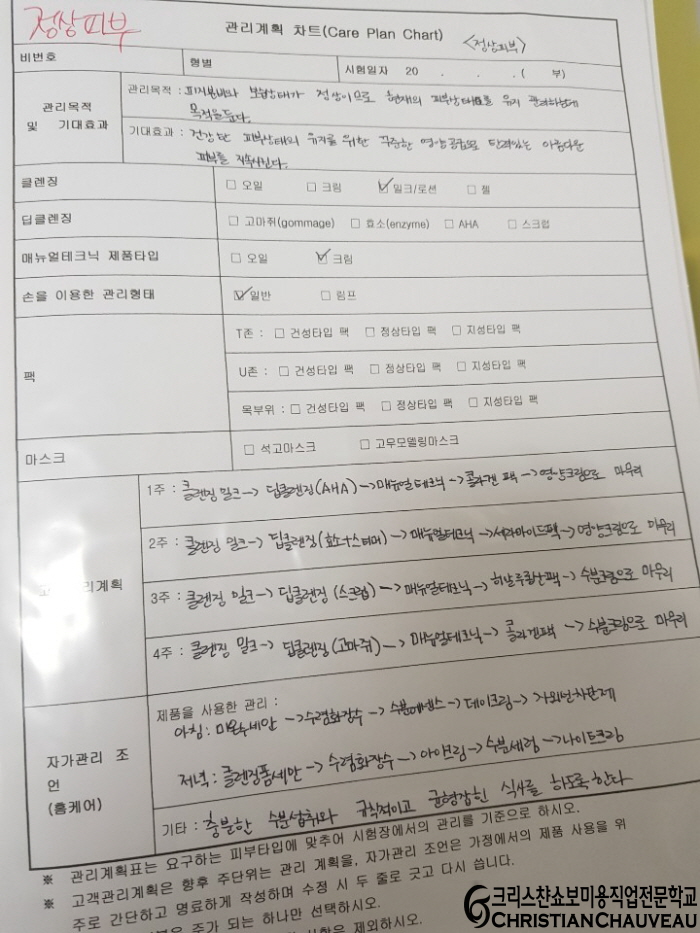 정상피부
관리계획 차트(Care Plan Chart) <정상피부>
비번호 형별 시험일자 20 . . . ( 부)
관리목적 및 기대효과
관리목적 : 피지분비와 보습상태가 정상이므로 현재의 피부상태를 유지 관리하는데
목적을 둔다.
기대효과 : 건강한 피부상태의 유지를 위한 꾸준한 영양공급으로 탄력있는 아름다운
피부를 지속시킨다.
클렌징 □ 오일 □ 크림 ☑ 밀크/로션 □ 젤
딥클렌징 □ 고마쥐(gommage) □ 효소(enzyme) □ AHA □ 스크럽
매뉴얼테크닉 제품타입 □ 오일 ☑ 크림
손을 이용한 관리형태 ☑ 일반 □ 림프
팩
T존 : □ 건성타입 팩 □ 정상타입 팩 □ 지성타입 팩
U존 : □ 건성타입 팩 □ 정상타입 팩 □ 지성타입 팩
목부위 : □ 건성타입 팩 □ 정상타입 팩 □ 지성타입 팩
마스크 □ 석고마스크 □ 고무모델링마스크
고 리계획
1주 : 클렌징 밀크-> 딥클렌징(AHA)->매뉴얼테크닉->콜라겐 팩->영양크림으로 마무리
2주 : 클렌징 밀크-> 딥클렌징(효소+스티머)->매뉴얼테크닉->세라마이드팩->영양크림으로 마무리
3주 : 클렌징 밀크-> 딥클렌징 (스크럽)->매뉴얼테크닉->히알루론산팩->수분크림으로 마무리
4주 : 클렌징 밀크-> 딥클렌징(고마쥐)->매뉴얼테크닉->콜라겐팩->수분크림으로 마무리
자가관리 조언
(홈케어)
제품을 사용한 관리 :
아침: 미온수세안->수렴화장수->수분에센스->데이크림->자외선차단제
저녁: 클렌징폼세안->수렴화장수->아이크림->수분세럼->나이트크림
기타 : 충분한 수분섭취와 규칙적이고 균형잡힌 식사를 하도록한다
※ 관리계획표는 요구하는 피부타입에 맞추어 시험장에서의 관리를 기준으로 하시오.
※ 고객관리계획은 향후 주단위는 관리 계획을, 자가관리 조언은 가정에서의 제품 사용을 위
주로 간단하고 명료하게 작성하며 수정 시 두 줄로 긋고 다시 씁니다.
주가 되는 하나만 선택하시오.
사항은 제외하시오.
크리스챤쇼보미용직업전문학교
CHRISTIAN CHAUVEAU